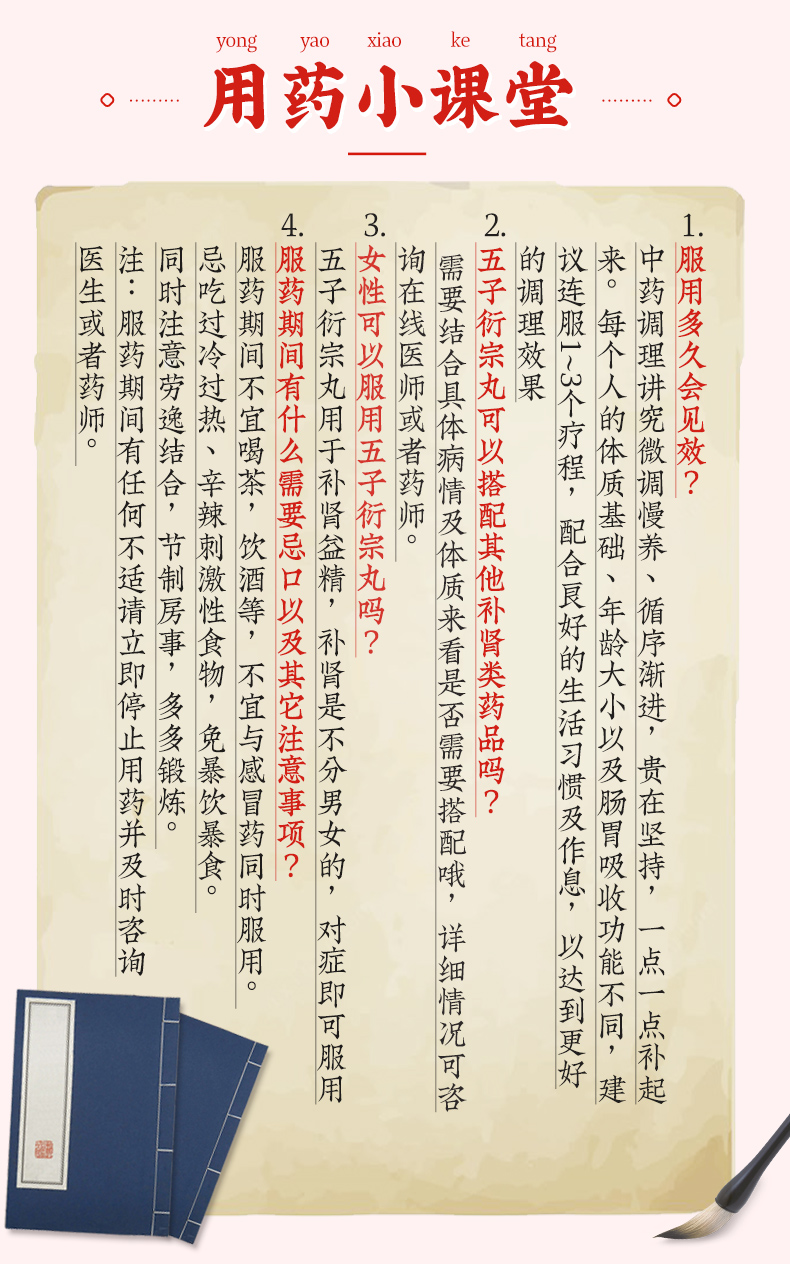 yong yao xiao ke tang
用药小课堂
1.
服用多久会见效？
中药调理讲究微调慢养、循序渐进，贵在坚持，一点一点补起
来。每个人的体质基础、年龄大小以及肠胃吸收功能不同，建
议连服1~3个疗程，配合良好的生活习惯及作息，以达到更好
的调理效果
2.
五子衍宗丸可以搭配其他补肾类药品吗？
需要结合具体病情及体质来看是否需要搭配哦，详细情况可咨
询在线医师或者药师。
3.
女性可以服用五子衍宗丸吗？
五子衍宗丸用于补肾益精，补肾是不分男女的，对症即可服用
4.
服药期间有什么需要忌口以及其它注意事项？
服药期间不宜喝茶，饮酒等，不宜与感冒药同时服用。
忌吃过冷过热、辛辣刺激性食物，免暴饮暴食。
同时注意劳逸结合，节制房事，多多锻炼。
注：服药期间有任何不适请立即停止用药并及时咨询
医生或者药师。